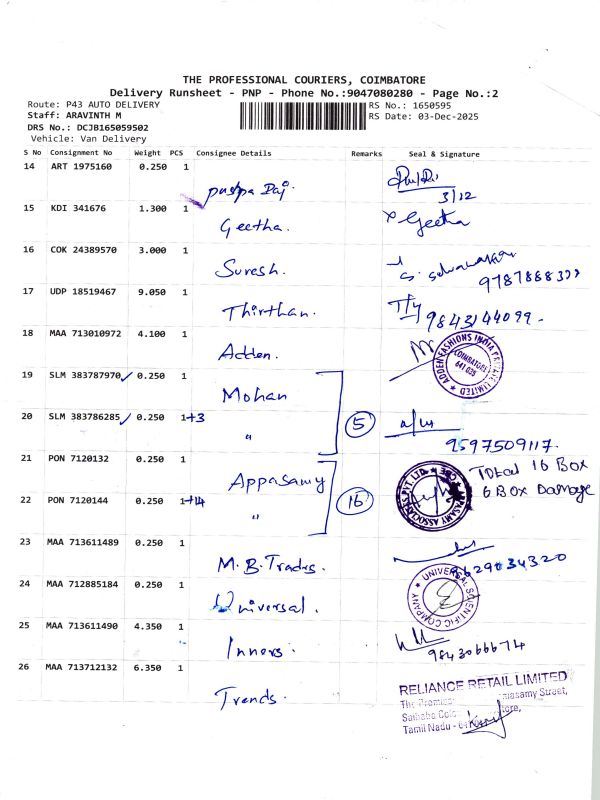 THE PROFESSIONAL COURIERS, COIMBATORE
Delivery Runsheet - PNP - Phone No.:9047080280 - Page No.:2
Route: P43 AUTO DELIVERY RS No.: 1650595
Staff: ARAVINTH M RS Date: 03-Dec-2025
DRS No.: DCJB165059502
Vehicle: Van Delivery
S No Consignment No Weight PCS Consignee Details Remarks Seal & Signature
14 ART 1975160 0.250 1
puspa Daj.
3/12
15 KDI 341676 1.300 1
Geetha. Geetha
16 COK 24389570 3.000 1
Suresh.
17 UDP 18519467 9.050 1
Thirthan. 9843144099.
18 MAA 713010972 4.100 1
Adden. ADDEN FASHIONS INDIA PRIVATE LIMITED COIMBATORE 641 025
19 SLM 383787970 0.250 1
Mohan
20 SLM 383786285 0.250 1+3 5
" 9597509117.
21 PON 7120132 0.250 1
Appasamy Total 16 Box
6 Box Damage
22 PON 7120144 0.250 1+14 16
" APPASAMY ASSOCIATES PVT. LTD. CBE
23 MAA 713611489 0.250 1
M.B. Trads. 9629834320
24 MAA 712885184 0.250 1
Universal. UNIVERSAL SCIENTIFIC COMPANY
25 MAA 713611490 4.350 1
Inners. 9843066674
26 MAA 713712132 6.350 1
Trends. RELIANCE RETAIL LIMITED
masamy Street,
Saibaba
Tamil Nadu -